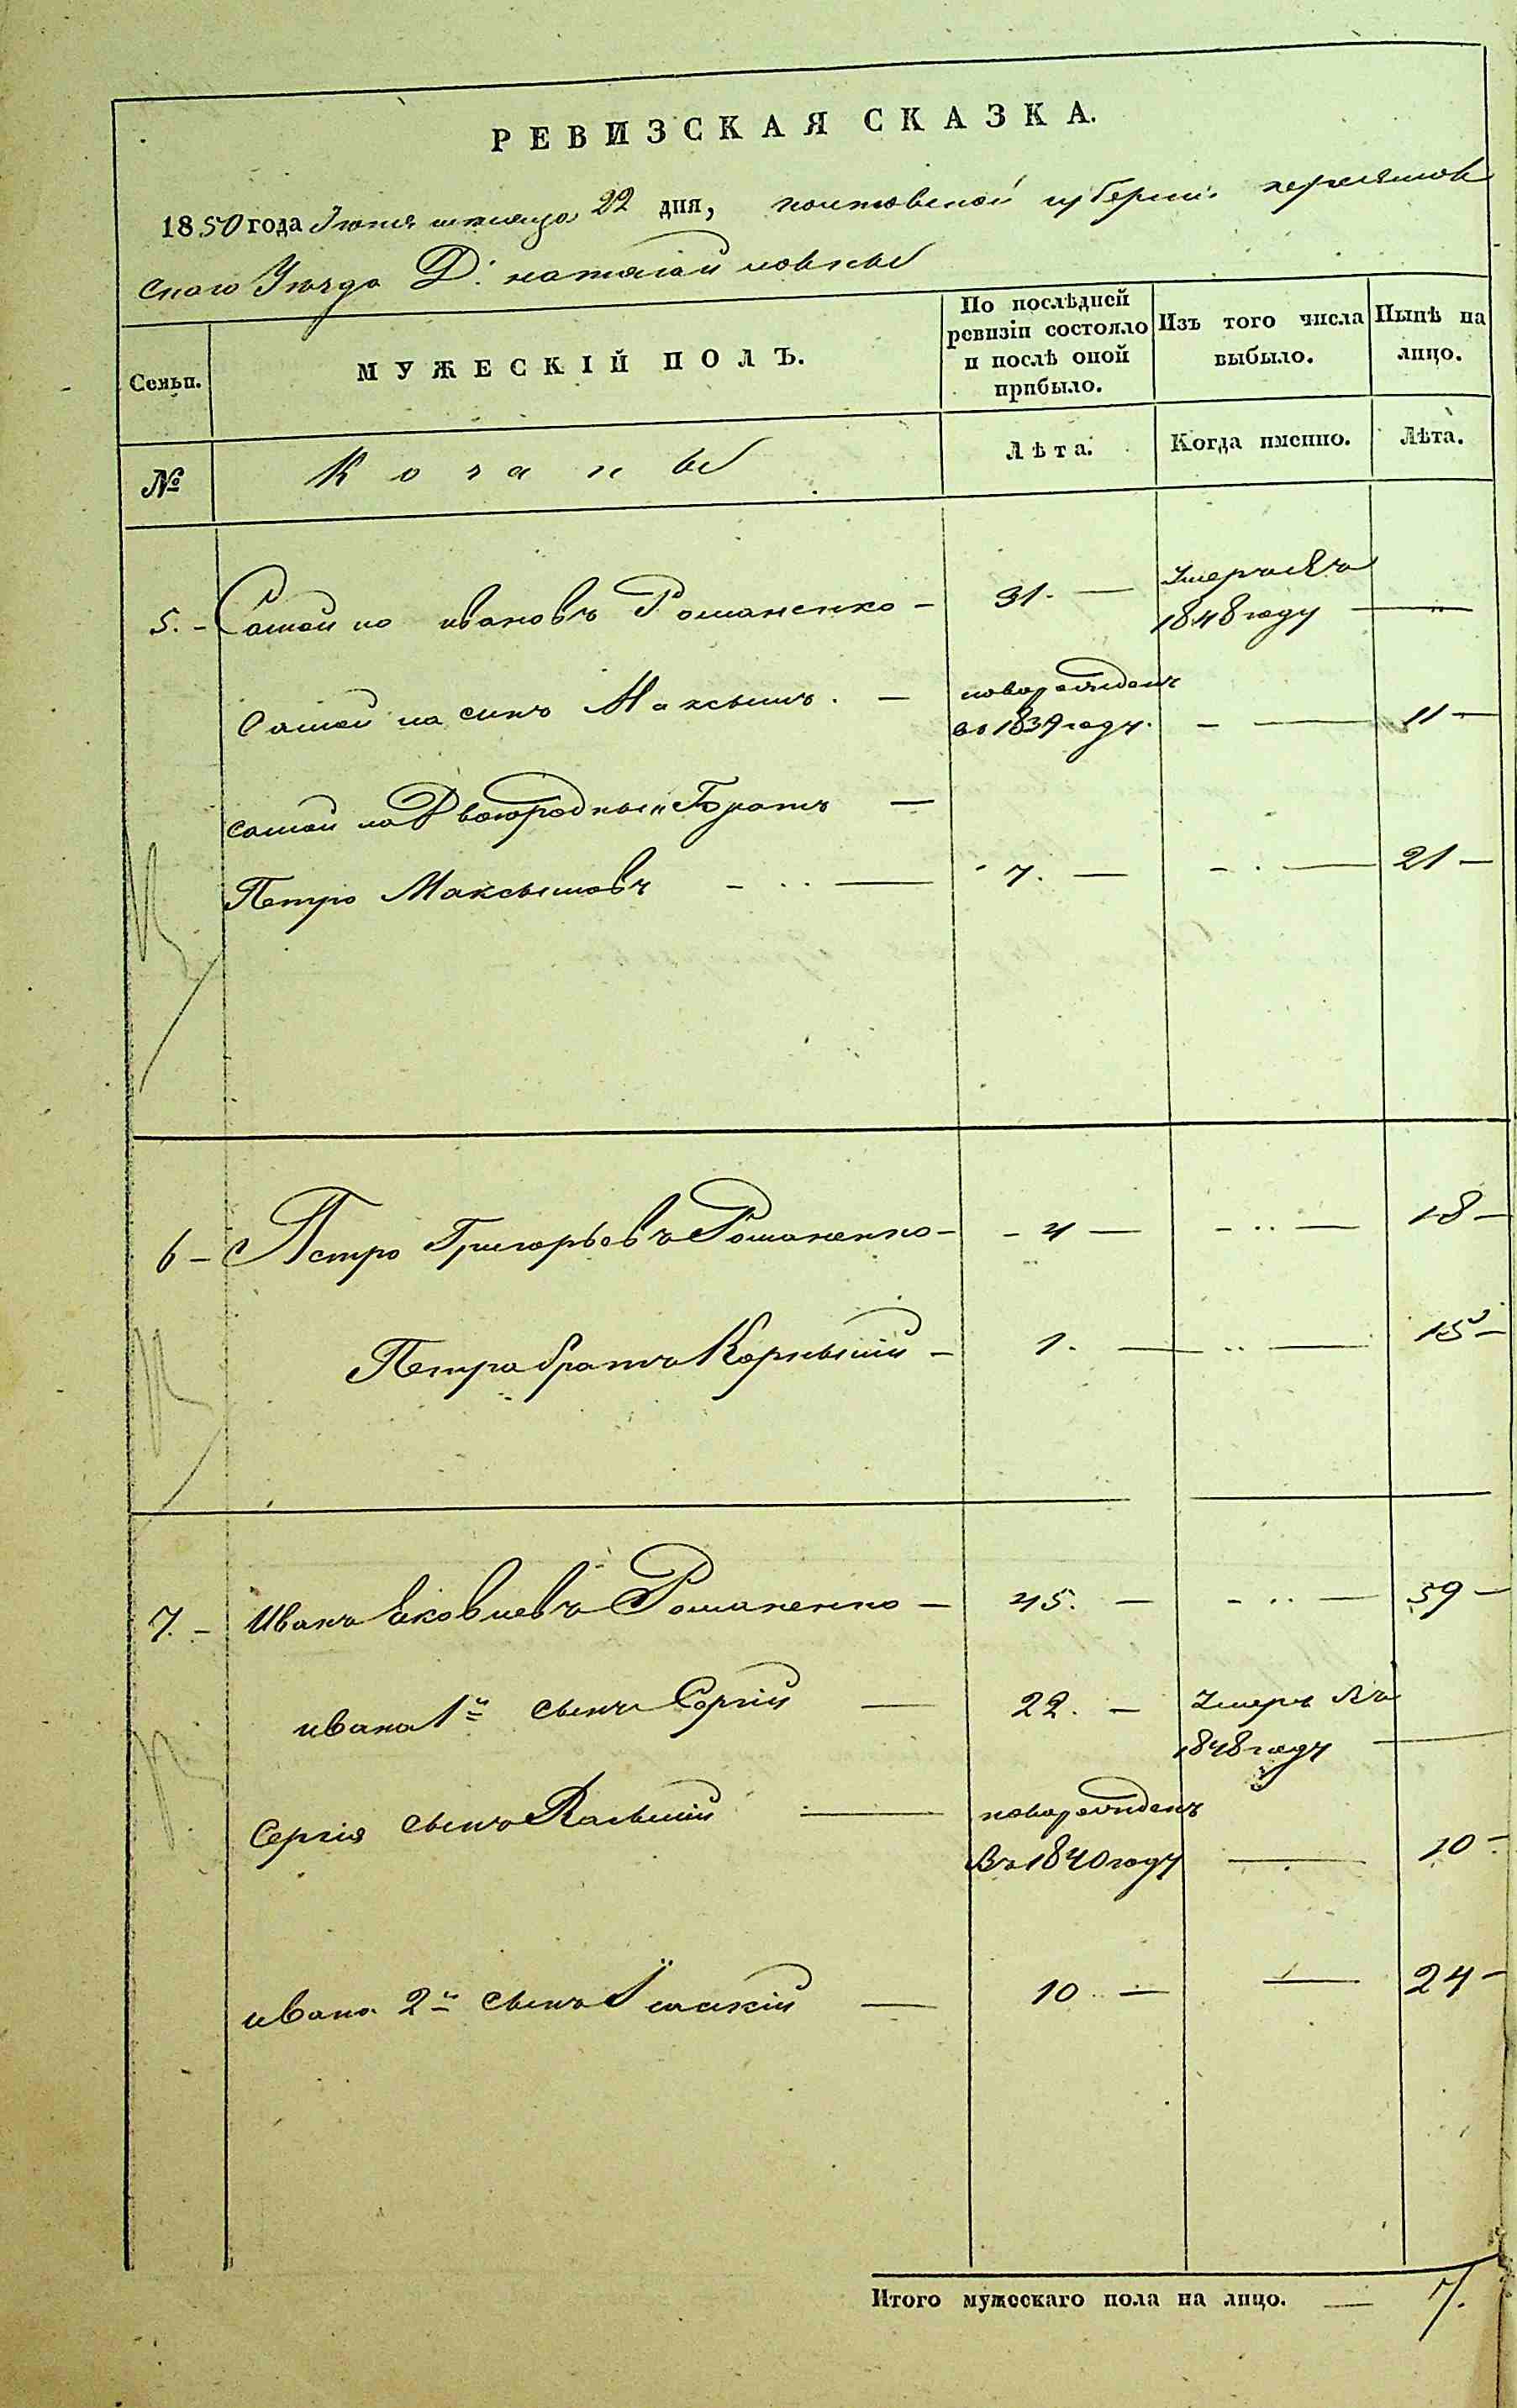 РЕВИЗСКАЯ СКАЗКА.
1850 года Іюня месяца 22 дня, полтавской губерніи переяслов
ского Уезда Д:
Семьи.
МУЖЕСКІЙ ПОЛЪ.
По послѣдней ревизіи состояло и послѣ оной прибыло.
Изъ того числа выбыло.
Нынѣ на лицо.
№
Козакы
Лѣта.
Когда именно.
Лѣта.
5. - Самойло ивановъ Романенко - 31. — Умеръ въ 1848 году —
Самойла синъ Максымъ. — новорожденъ во 1839 году. - — 11 —
самойла Двоюродный Братъ —
Петро Максымовъ - .. — 7. — - . — 21 —
6 - Петро Григорьевъ Романенко - - 4 — - .. — 18 —
Петра братъ Корнылій - 1. — .. — 15 —
7. - Иванъ Яковлевъ Романенко — 45. — - .. — 59 —
ивана 1й сынъ Сергій — 22. — Умеръ въ 1848 году —
Сергія сынъ — новорожденъ Въ 1840 году — 10 -
ивана 2й сынъ — 10 — — 24 -
Итого мужескаго пола на лицо. — 7.